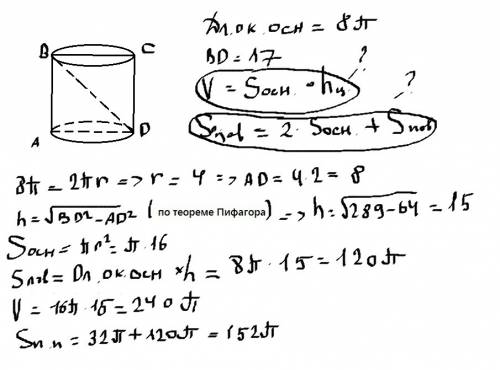 B C
A D
Дл.ок.осн = 8π
BD = 17
?
V = Sосн. · hц
?
Sпов = 2 · Sосн. + Sпов
8π = 2πr => r = 4 => AD = 4·2 = 8
h = √BD² - AD² ( по теореме Пифагора) => h = √289-64 = 15
Sосн = πr² = π·16
Sпов = Дл.ок.осн *h = 8π · 15 = 120π
V = 16π·15 = 240π
Sп.п = 32π + 120π = 152π